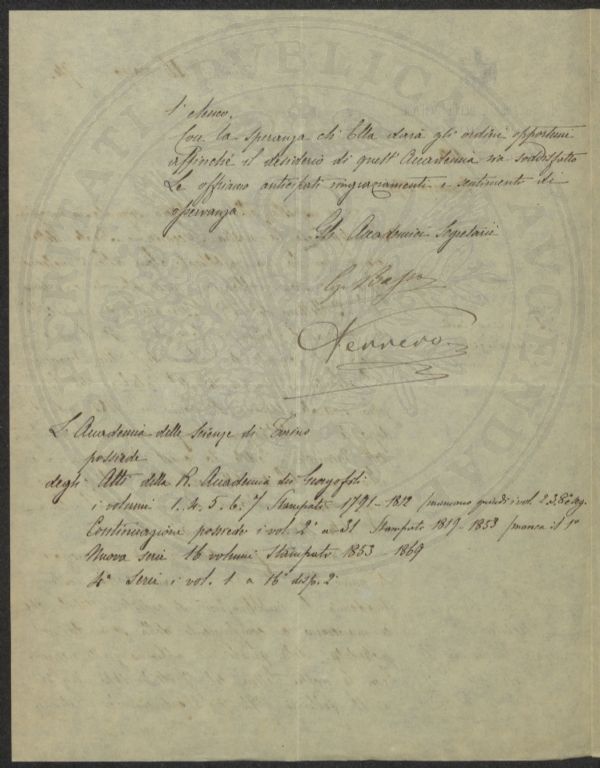 l'elenco.
Con la speranza ch'Ella darà gli ordini opportuni
affinchè il desiderio di quest'Accademia sia soddisfatto
Le offriamo anticipati ringraziamenti e sentimenti di
osservanza.
Gli Accademici Segretarii
G. Basso
Ferrero
L'Accademia delle Scienze di Torino
possiede
degli Atti della R. Accademia dei Georgofili
i volumi 1. 4. 5. 6. 7 Stampati 1791-1812 (mancano quindi i vol. 2. 3. 8° e seg.
Continuazione possiede i vol. 2° a 31 Stampati 1819-1853 (manca il 1°
Nuova serie 16 volumi Stampati 1853-1869
4ª Serie i vol. 1 a 16° disp. 2ª